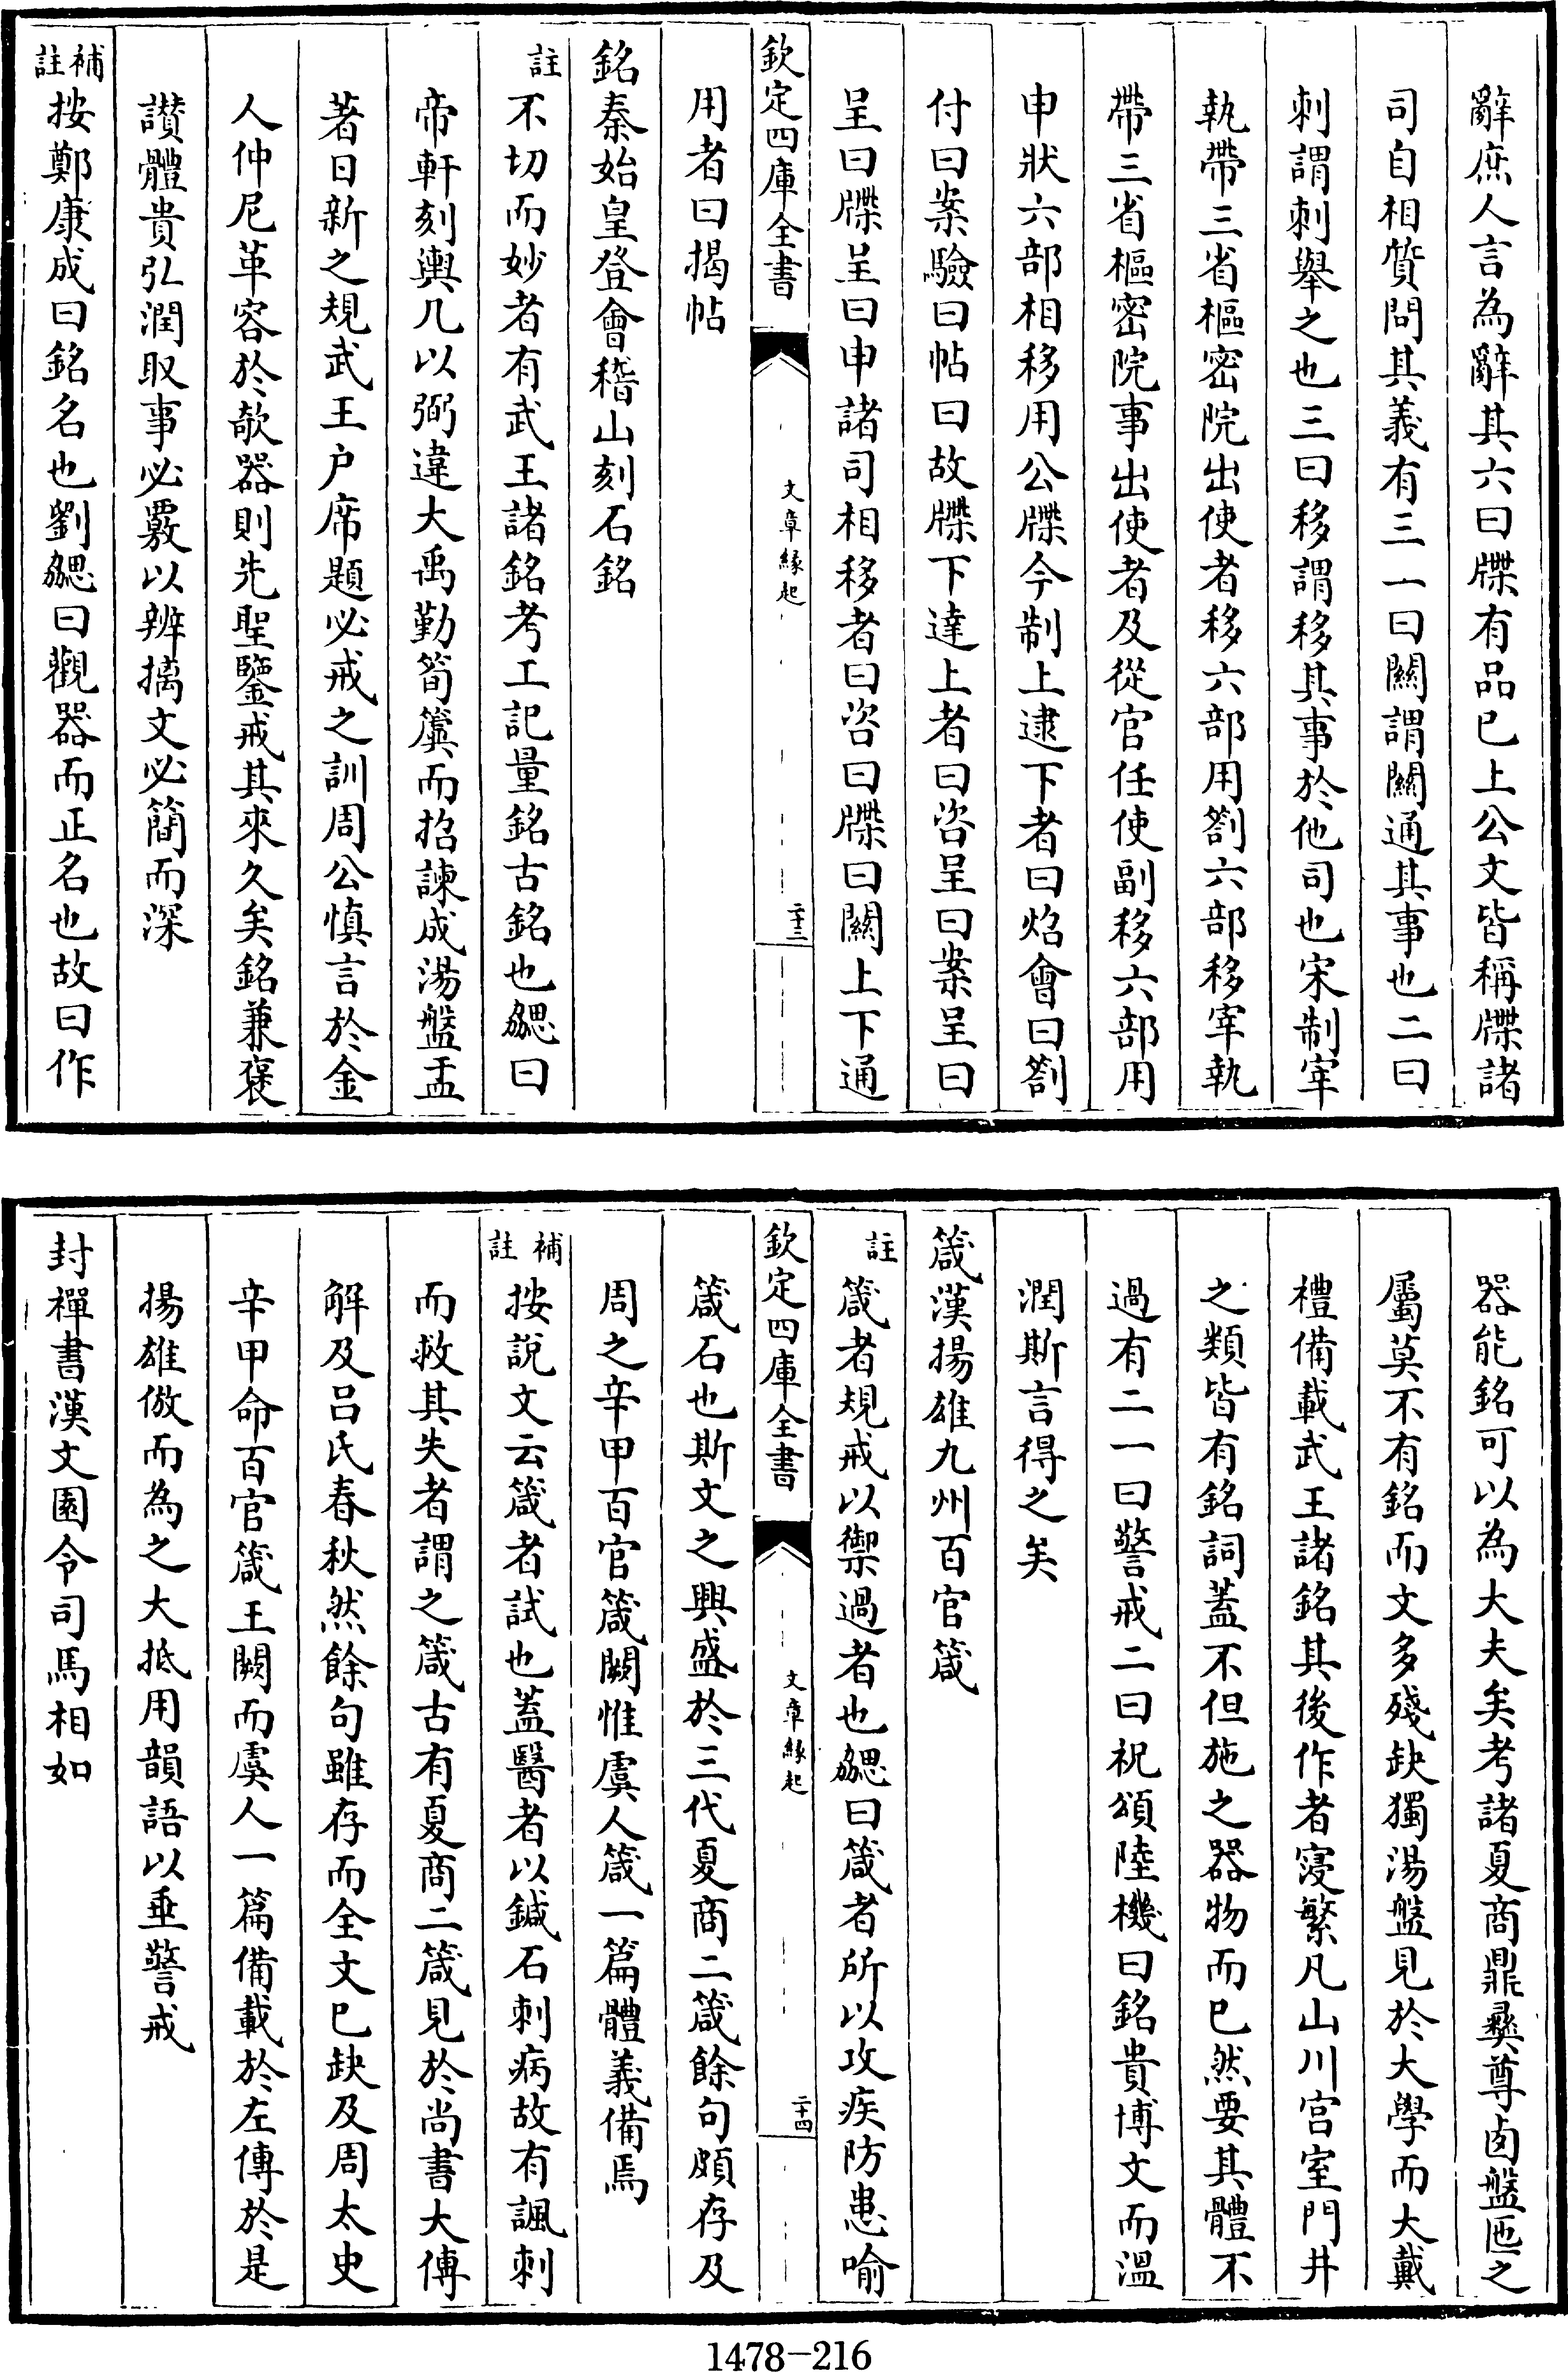 辭庶人言為辭其六曰牒有品已上公文皆稱牒諸
司自相質問其義有三一曰關謂關通其事也二曰
刺謂刺舉之也三曰移謂移其事於他司也宋制宰
執帶三省樞密院出使者移六部用劄六部移宰執
帶三省樞密院事出使者及從官任使副移六部用
申狀六部相移用公牒今制上逮下者曰炤會曰劄
付曰案驗曰帖曰故牒下達上者曰咨呈曰案呈曰
呈曰牒呈曰申諸司相移者曰咨曰牒曰關上下通
欽定四庫全書
文章緣起
二十三
用者曰揭帖
銘秦始皇登會稽山刻石銘
註
不切而妙者有武王諸銘考工記量銘古銘也勰曰
帝軒刻輿几以弼違大禹勤筍簴而招諫成湯盤盂
著日新之規武王户席題必戒之訓周公慎言於金
人仲尼革容於欹器則先聖鑒戒其來久矣銘兼褒
讚體貴弘潤取事必覈以辨摛文必簡而深
補註
按鄭康成曰銘名也劉勰曰觀器而正名也故曰作
器能銘可以為大夫矣考諸夏商鼎彝尊卣盤匜之
屬莫不有銘而文多殘缺獨湯盤見於大學而大戴
禮備載武王諸銘其後作者寖繁凡山川宫室門井
之類皆有銘詞蓋不但施之器物而已然要其體不
過有二一曰警戒二曰祝頌陸機曰銘貴博文而温
潤斯言得之矣
箴漢揚雄九州百官箴
註
箴者規戒以禦過者也勰曰箴者所以攻疾防患喻
欽定四庫全書
文章緣起
二十四
箴石也斯文之興盛於三代夏商二箴餘句頗存及
周之辛甲百官箴闕惟虞人箴一篇體義備焉
補註
按說文云箴者試也蓋醫者以鍼石刺病故有諷刺
而救其失者謂之箴古有夏商二箴見於尚書大傳
解及吕氏春秋然餘句雖存而全文已缺及周太史
辛甲命百官箴王闕而虞人一篇備載於左傳於是
揚雄倣而為之大抵用韻語以垂警戒
封禪書漢文園令司馬相如
1478-216